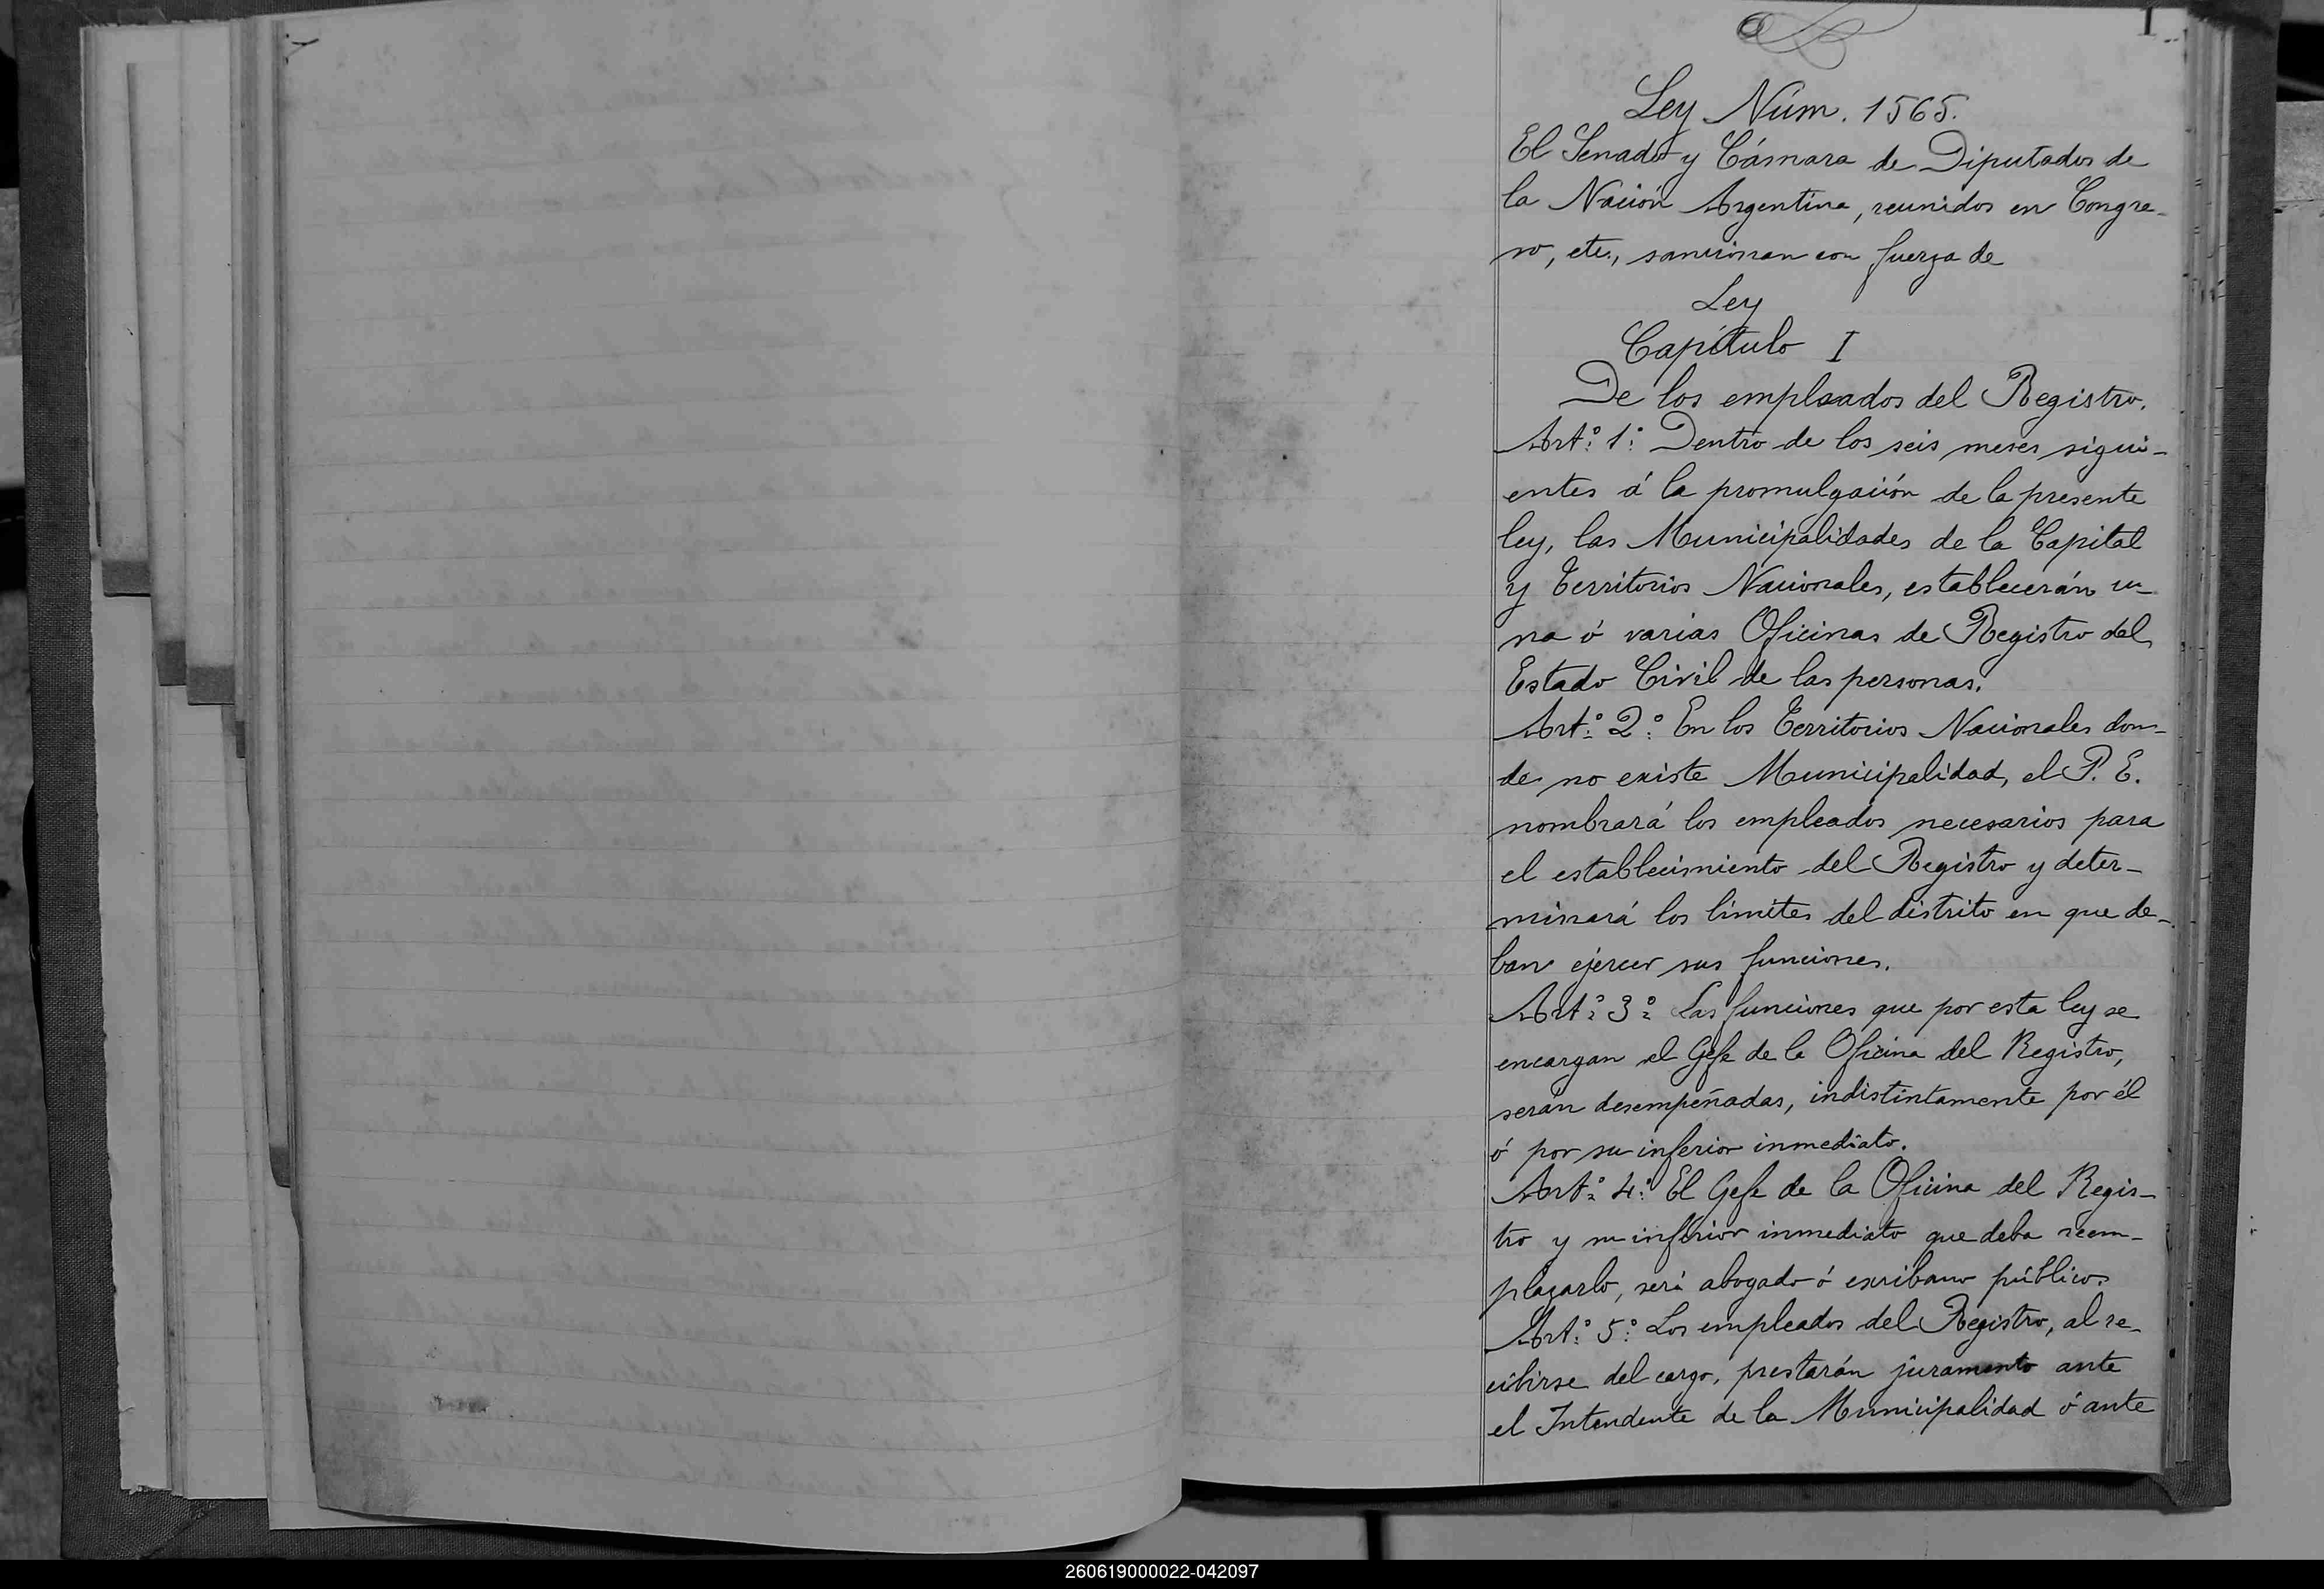 1
Ley Núm. 1565.
El Senado y Cámara de Diputados de
la Nación Argentina, reunidos en Congre-
so, etc., sancionan con fuerza de
Ley
Capítulo I
De los empleados del Registro.
Art.º 1.º Dentro de los seis meses sigui-
entes á la promulgación de la presente
ley, las Municipalidades de la Capital
y Territorios Nacionales, establecerán u-
na ó varias Oficinas de Registro del
Estado Civil de las personas.
Art.º 2.º En los Territorios Nacionales don-
de no existe Municipalidad, el P. E.
nombrará los empleados necesarios para
el establecimiento del Registro y deter-
minará los límites del distrito en que de-
ban ejercer sus funciones.
Art.º 3.º Las funciones que por esta ley se
encargan al Gefe de la Oficina del Registro,
serán desempeñadas, indistintamente por él
ó por su inferior inmediato.
Art.º 4.º El Gefe de la Oficina del Regis-
tro y su inferior inmediato que deba reem-
plazarlo, será abogado ó escribano público.
Art.º 5.º Los empleados del Registro, al re-
cibirse del cargo, prestarán juramento ante
el Intendente de la Municipalidad ó ante
260619000022-042097